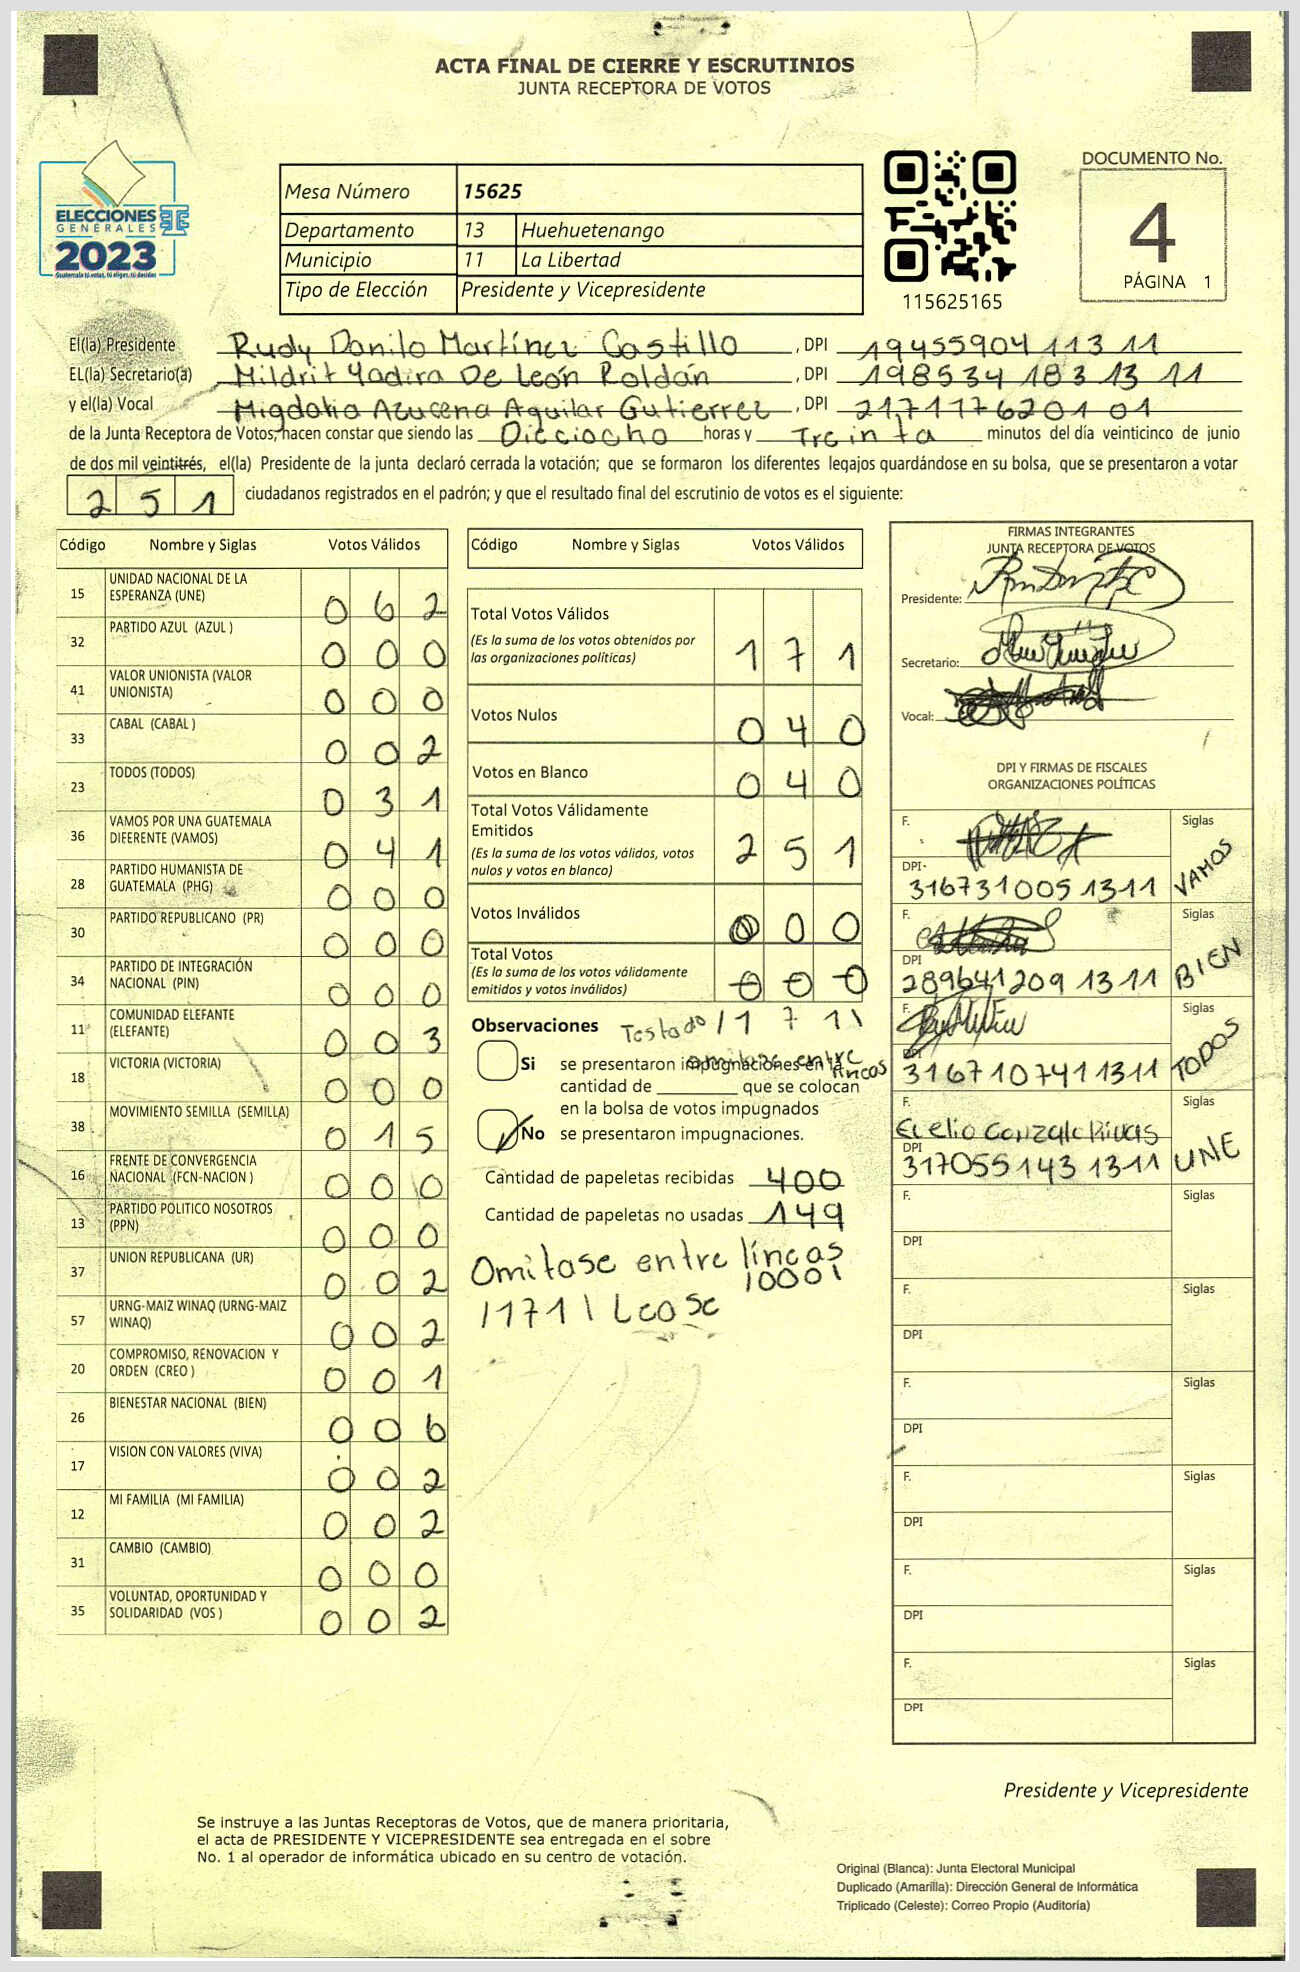 ACTA FINAL DE CIERRE Y ESCRUTINIOS
JUNTA RECEPTORA DE VOTOS
ELECCIONES
GENERALES
2023
Guatemala tú votas, tú eliges, tú decides
Mesa Número 15625
Departamento 13 Huehuetenango
Municipio 11 La Libertad
Tipo de Elección Presidente y Vicepresidente
115625165
DOCUMENTO No.
4
PÁGINA 1
El(la) Presidente Rudy Danilo Martínez Castillo, DPI 1945590411311
EL(la) Secretario(a) Mildrit Yadira De León Roldán, DPI 1985341831311
y el(la) Vocal Migdalia Azucena Aguilar Gutierrez, DPI 2171176201 01
de la Junta Receptora de Votos, hacen constar que siendo las Dicciocho horas y Treinta minutos del día veinticinco de junio
de dos mil veintitrés, el(la) Presidente de la junta declaró cerrada la votación; que se formaron los diferentes legajos guardándose en su bolsa, que se presentaron a votar
251 ciudadanos registrados en el padrón; y que el resultado final del escrutinio de votos es el siguiente:
Código Nombre y Siglas Votos Válidos
15 UNIDAD NACIONAL DE LA ESPERANZA (UNE) 062
32 PARTIDO AZUL (AZUL ) 000
41 VALOR UNIONISTA (VALOR UNIONISTA) 000
33 CABAL (CABAL ) 002
23 TODOS (TODOS) 031
36 VAMOS POR UNA GUATEMALA DIFERENTE (VAMOS) 041
28 PARTIDO HUMANISTA DE GUATEMALA (PHG) 000
30 PARTIDO REPUBLICANO (PR) 000
34 PARTIDO DE INTEGRACIÓN NACIONAL (PIN) 000
11 COMUNIDAD ELEFANTE (ELEFANTE) 003
18 VICTORIA (VICTORIA) 000
38 MOVIMIENTO SEMILLA (SEMILLA) 015
16 FRENTE DE CONVERGENCIA NACIONAL (FCN-NACION ) 000
13 PARTIDO POLITICO NOSOTROS (PPN) 000
37 UNION REPUBLICANA (UR) 002
57 URNG-MAIZ WINAQ (URNG-MAIZ WINAQ) 002
20 COMPROMISO, RENOVACION Y ORDEN (CREO ) 001
26 BIENESTAR NACIONAL (BIEN) 006
17 VISION CON VALORES (VIVA) 002
12 MI FAMILIA (MI FAMILIA) 002
31 CAMBIO (CAMBIO) 000
35 VOLUNTAD, OPORTUNIDAD Y SOLIDARIDAD (VOS ) 002
Código Nombre y Siglas Votos Válidos
Total Votos Válidos
(Es la suma de los votos obtenidos por
las organizaciones políticas) 171
Votos Nulos 040
Votos en Blanco 040
Total Votos Válidamente
Emitidos
(Es la suma de los votos válidos, votos
nulos y votos en blanco) 251
Votos Inválidos 000
Total Votos
(Es la suma de los votos válidamente
emitidos y votos inválidos) 000
Observaciones Testado /171\
omitase entre lincas
Si se presentaron impugnaciones en la
cantidad de ________ que se colocan
en la bolsa de votos impugnados
No se presentaron impugnaciones.
Cantidad de papeletas recibidas 400
Cantidad de papeletas no usadas 149
Omitase entre líncas
/171\ Lcasc /000\
FIRMAS INTEGRANTES
JUNTA RECEPTORA DE VOTOS
Presidente:
Secretario:
Vocal:
DPI Y FIRMAS DE FISCALES
ORGANIZACIONES POLÍTICAS
F. Siglas
DPI 3167310051311 VAMOS
F. Siglas
DPI 2896412091311 BIEN
F. Siglas
DPI 3167107411311 TODOS
F. Siglas
Evelio Gonzalo Rivas
DPI 3170551431311 UNE
F. Siglas
DPI
F. Siglas
DPI
F. Siglas
DPI
F. Siglas
DPI
F. Siglas
DPI
F. Siglas
DPI
Presidente y Vicepresidente
Se instruye a las Juntas Receptoras de Votos, que de manera prioritaria,
el acta de PRESIDENTE Y VICEPRESIDENTE sea entregada en el sobre
No. 1 al operador de informática ubicado en su centro de votación.
Original (Blanca): Junta Electoral Municipal
Duplicado (Amarilla): Dirección General de Informática
Triplicado (Celeste): Correo Propio (Auditoría)